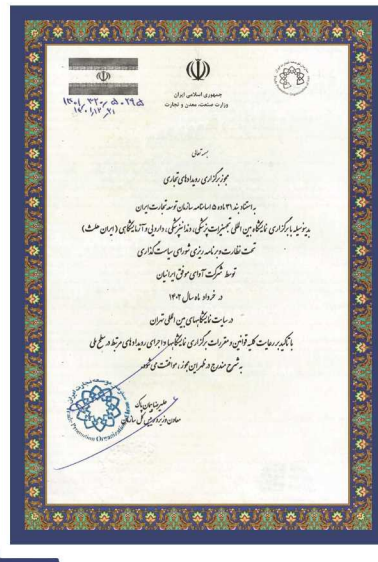 جمهوری اسلامی ایران
وزارت صنعت، معدن و تجارت
بسمه تعالی
مجوز برگزاری رویدادهای تجاری
به استناد بند ۳۱ ماده ۵ اساسنامه سازمان توسعه تجارت ایران
بدینوسیله با برگزاری نمایشگاه بین المللی تجهیزات پزشکی، دندانپزشکی، دارویی و آزمایشگاهی (ایران هلث)
تحت نظارت و برنامه ریزی شورای سیاست گذاری
توسط شرکت آوای موفق ایرانیان
در خرداد ماه سال ۱۴۰۲
در سایت نمایشگاههای بین المللی تهران
با تاکید بر رعایت کلیه قوانین و مقررات برگزاری نمایشگاهها و اجرای رویدادهای مرتبط در سطح ملی
به شرح مندرج در ظهر این مجوز، موافقت می شود.
علیرضا پیمان پاک
معاون وزیر و رئیس کل سازمان
Promotion Organization